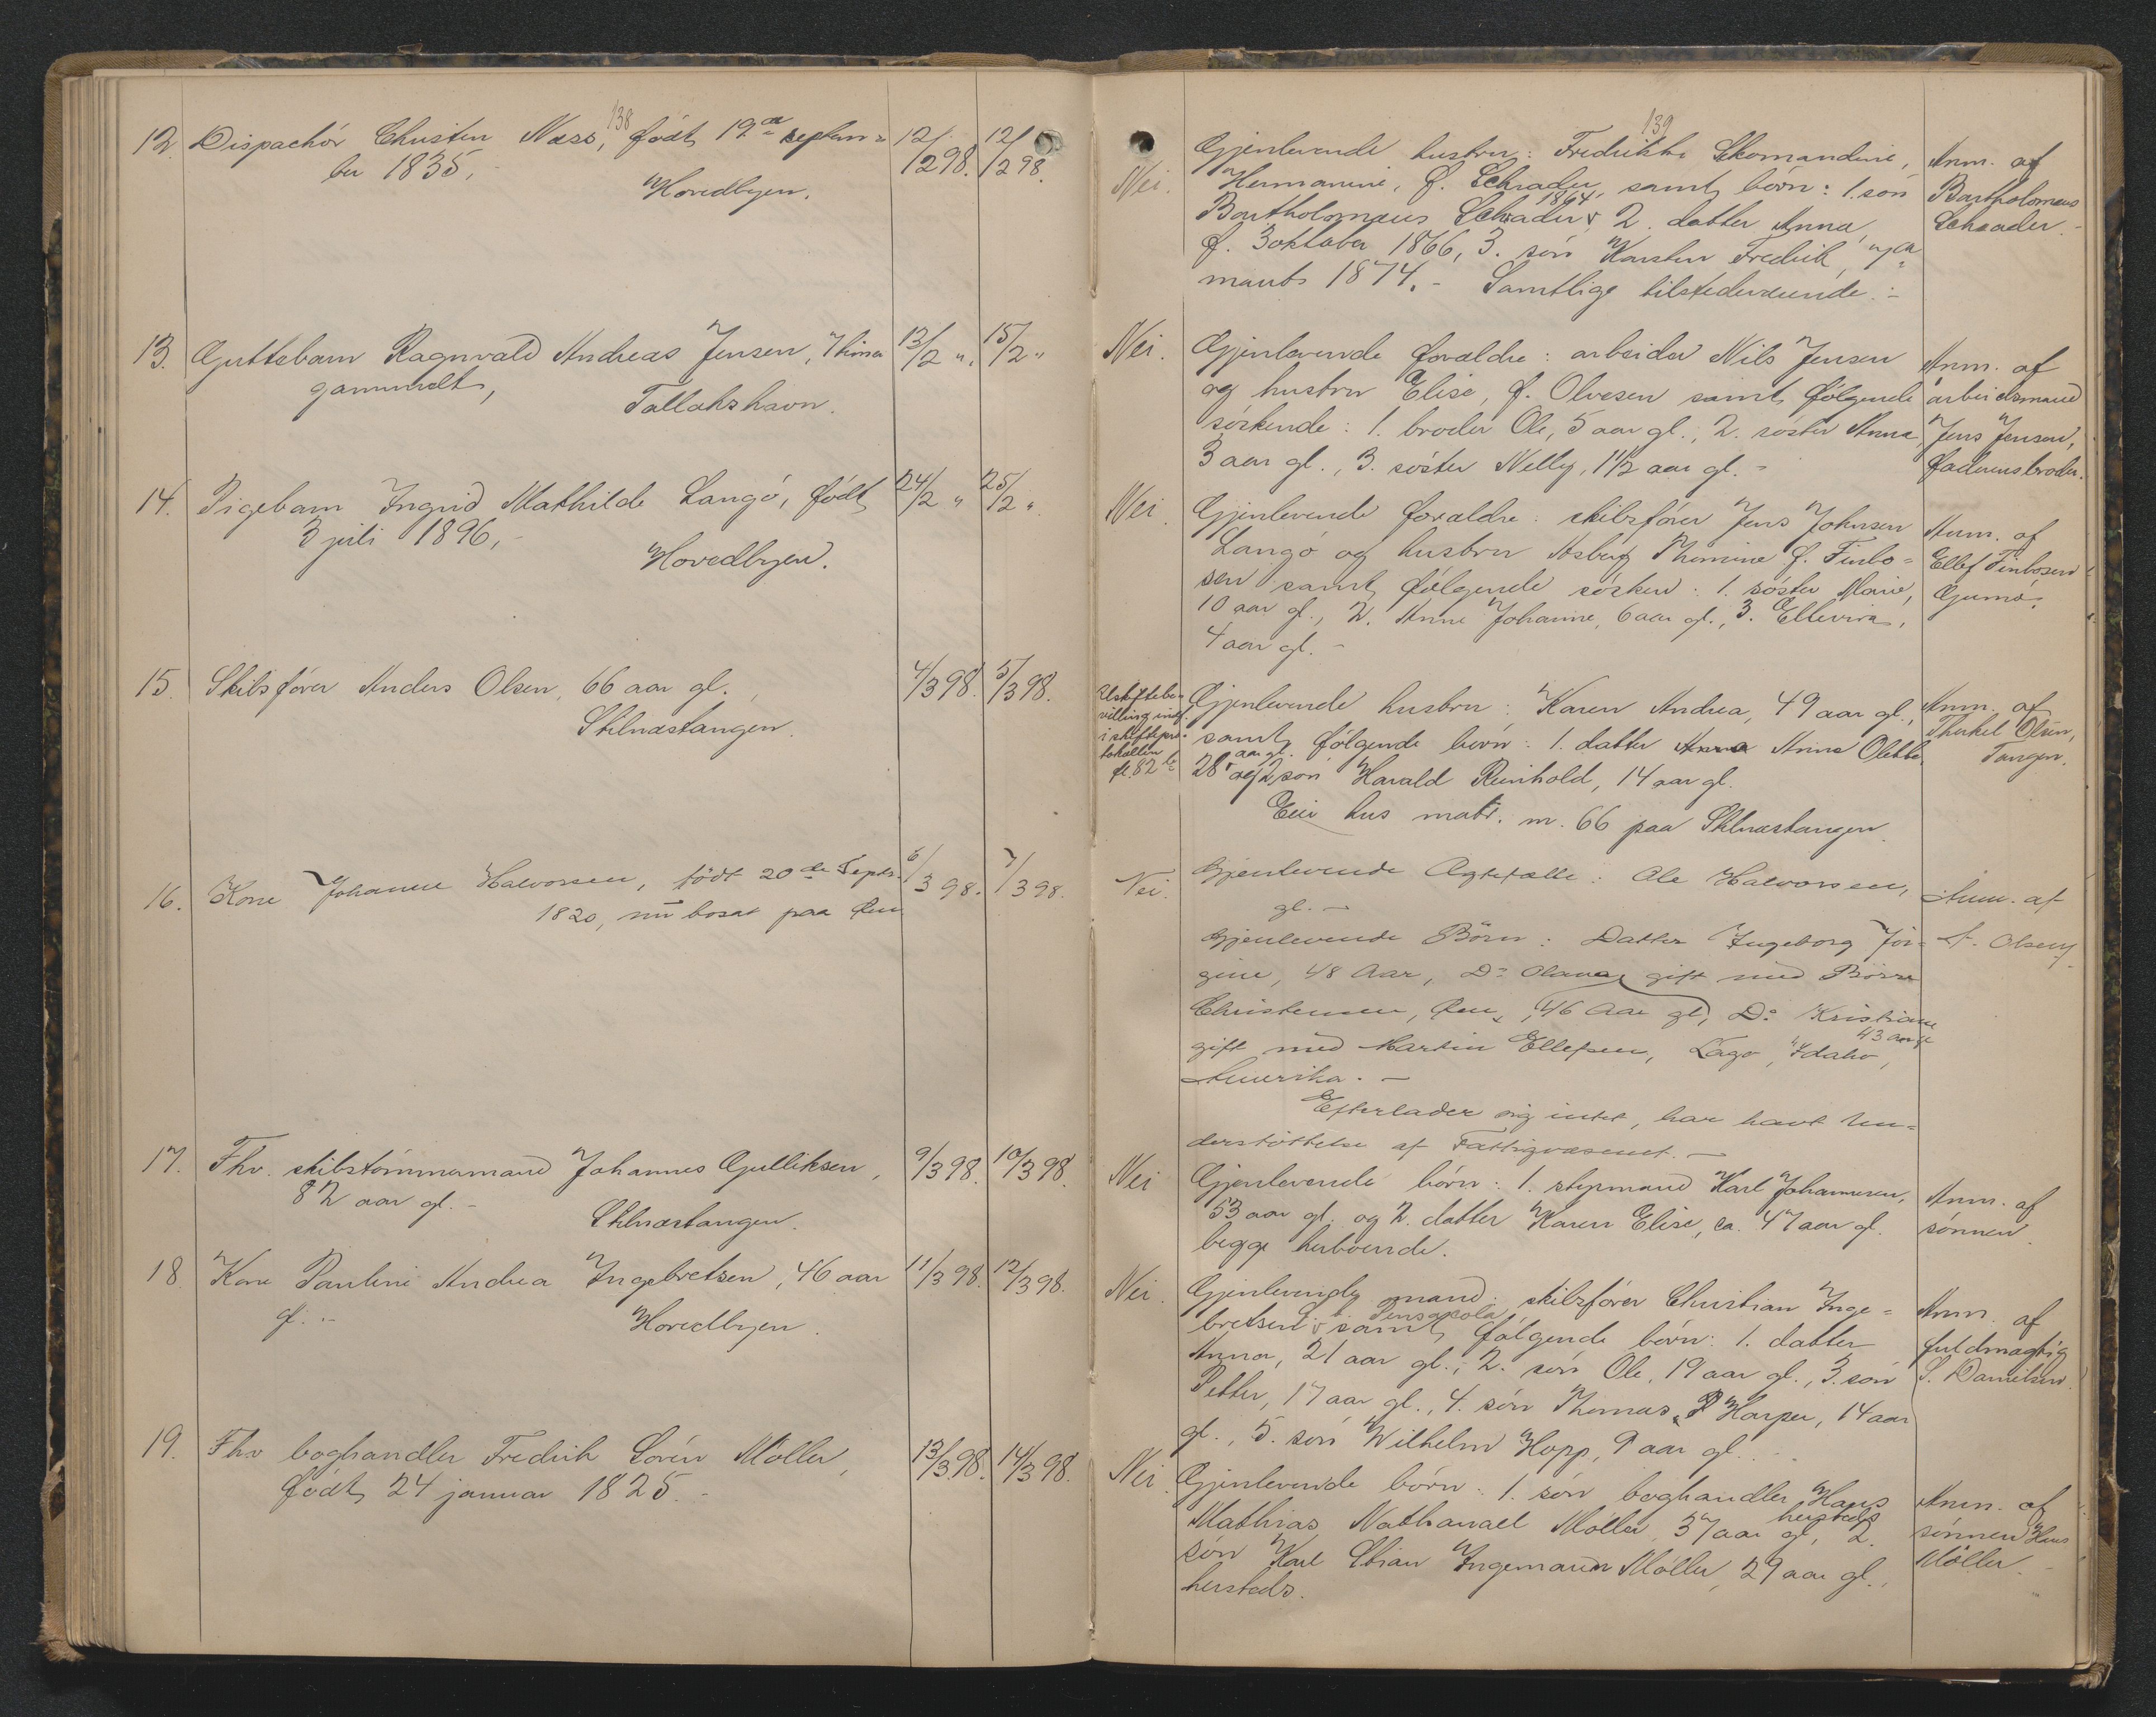 138
12. Dispachör Christen Næss, født 19de septem= 12/2 98. 12/2 98.
ber 1835,
Hovedbyen.
13. Guttebarn Ragnvald Andreas Jensen, 7 timer 13/2 ". 15/2 "
gammelt,
Tallakshavn.
14. Pigebarn Ingrid Mathilde Langö, født 24/2 " 25/2 ".
3 juli 1896,
Hovedbyen.
15. Skibsfører Anders Olsen, 66 aar gl. 4/3 98. 5/3 98.
Skilnæstangen.
16. Kone Johanne Halvorsen, född 20de Septr. 6/3 98. 7/3 98.
1820, nu bosat paa
17. Fhv. skibstømmermand Johannes Gulliksen, 9/3 98. 10/3 98.
82 aar gl. -
Skilnæstangen.
18. Kone Pauline Andrea Ingebretsen, 46 aar 11/3 98. 12/3 98.
gl. -
Hovedbyen.
19. Fhv boghandler Fredrik Sörén Möller, 13/3 98. 14/3 98.
født 24 januar 1825. -
139
Nei. Gjenlevende hustru: Fredrikke
Hermanine, f. Schrader, samt børn: 1. søn
Bartholomæus Schrader, 1864 2. datter Anna,
f. 3 oktober 1866, 3. søn Karsten Fredrik,
marts 1874. - Samtlige tilstedeværende. -
Anm. af
Bartholomæus
Schrader. -
Nei. Gjenlevende forældre: arbeider Nils Jensen
og hustru Elise, f. Olvesen samt følgende
söskende: 1. broder Ole, 5 aar gl., 2. söster Anna,
3 aar gl., 3. söster Nelly, 1 1/2 aar gl. -
Anm. af
arbeidsmand
Jens Jensen,
faderens broder.
Nei. Gjenlevende forældre: skibsfører Jens Johnsen
Langö og hustru Asbørg Thomine f. Finbo=
sen samt følgende søsken: 1. söster Marie,
10 aar gl., 2. Anne Johanne, 6 aar gl., 3. Ellevine,
4 aar gl. -
Anm. af
Ellef Finbosen
Gumö.
Uskiftebe=
villing indf.
i skiftepro=
tokollen
fl. 82
Gjenlevende hustru: Karen Andrea, 49 aar gl.,
samt følgende børn: 1. datter Anna Anne Olette,
28 aar gl. og 2 søn Harald Reinhold, 14 aar gl.
Eier hus matr. nr. 66 paa Skilnæstangen.
Anm. af
Therkel Olsen,
Tangen.
Nei. Gjenlevende Ægtefælle: Ole Halvorsen,
gl. -
Gjenlevende Börn: Datter Ingeborg Jör=
gine, 48 Aar, Do Olava gift med Börre
Christensen, 46 Aar gl, Do Kristiane
43 aar gl
gift med Martin Ellefsen, Lago, Idaho,
Amerika. -
Efterlader sig intet, har havt Un=
derstöttelse af Fattigvæsenet. -
Anm. af
A. Olsen
Nei Gjenlevende börn: 1. styrmand Karl Johannesen,
53 aar gl. og 2. datter Karen Elise, ca. 47 aar gl.
begge herboende.
Anm. af
sønnen.
Nei. Gjenlevende mand: skibsfører Christian Inge=
bretsen Pensacola samt følgende børn: 1. datter
Anna, 21 aar gl., 2. søn Ole, 19 aar gl., 3. søn
Petter, 17 aar gl., 4. søn Thomas P Harper, 14 aar
gl., 5. søn Wilhelm Hopp, 9 aar gl. -
Anm. af
fuldmægtig
S. Danielsen.
Nei. Gjenlevende børn: 1. søn boghandler Hans
Mathias Nathanael Möller, 37 aar gl, hersteds 2.
søn Karl Stian Ingemann Möller, 29 aar gl.,
hersteds.
Anm. af
sønnen Hans
Möller. -